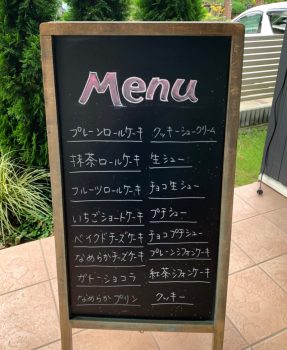 Menu
プレーンロールケーキ
抹茶ロールケーキ
フルーツロールケーキ
いちごショートケーキ
ベイクドチーズケーキ
なめらかチーズケーキ
ガトーショコラ
なめらかプリン
クッキーシュークリーム
生シュー
チョコ生シュー
プチシュー
チョコプチシュー
プレーンシフォンケーキ
紅茶シフォンケーキ
クッキー